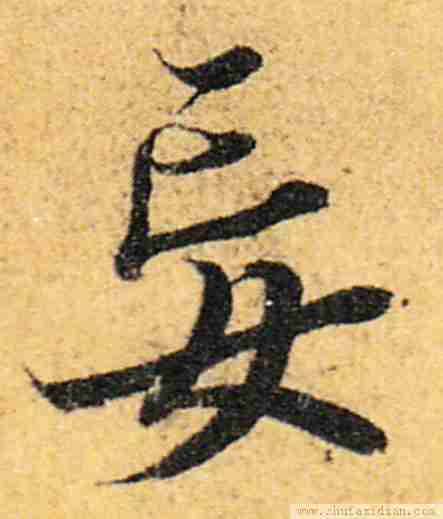 妄
www.shufazidian.com